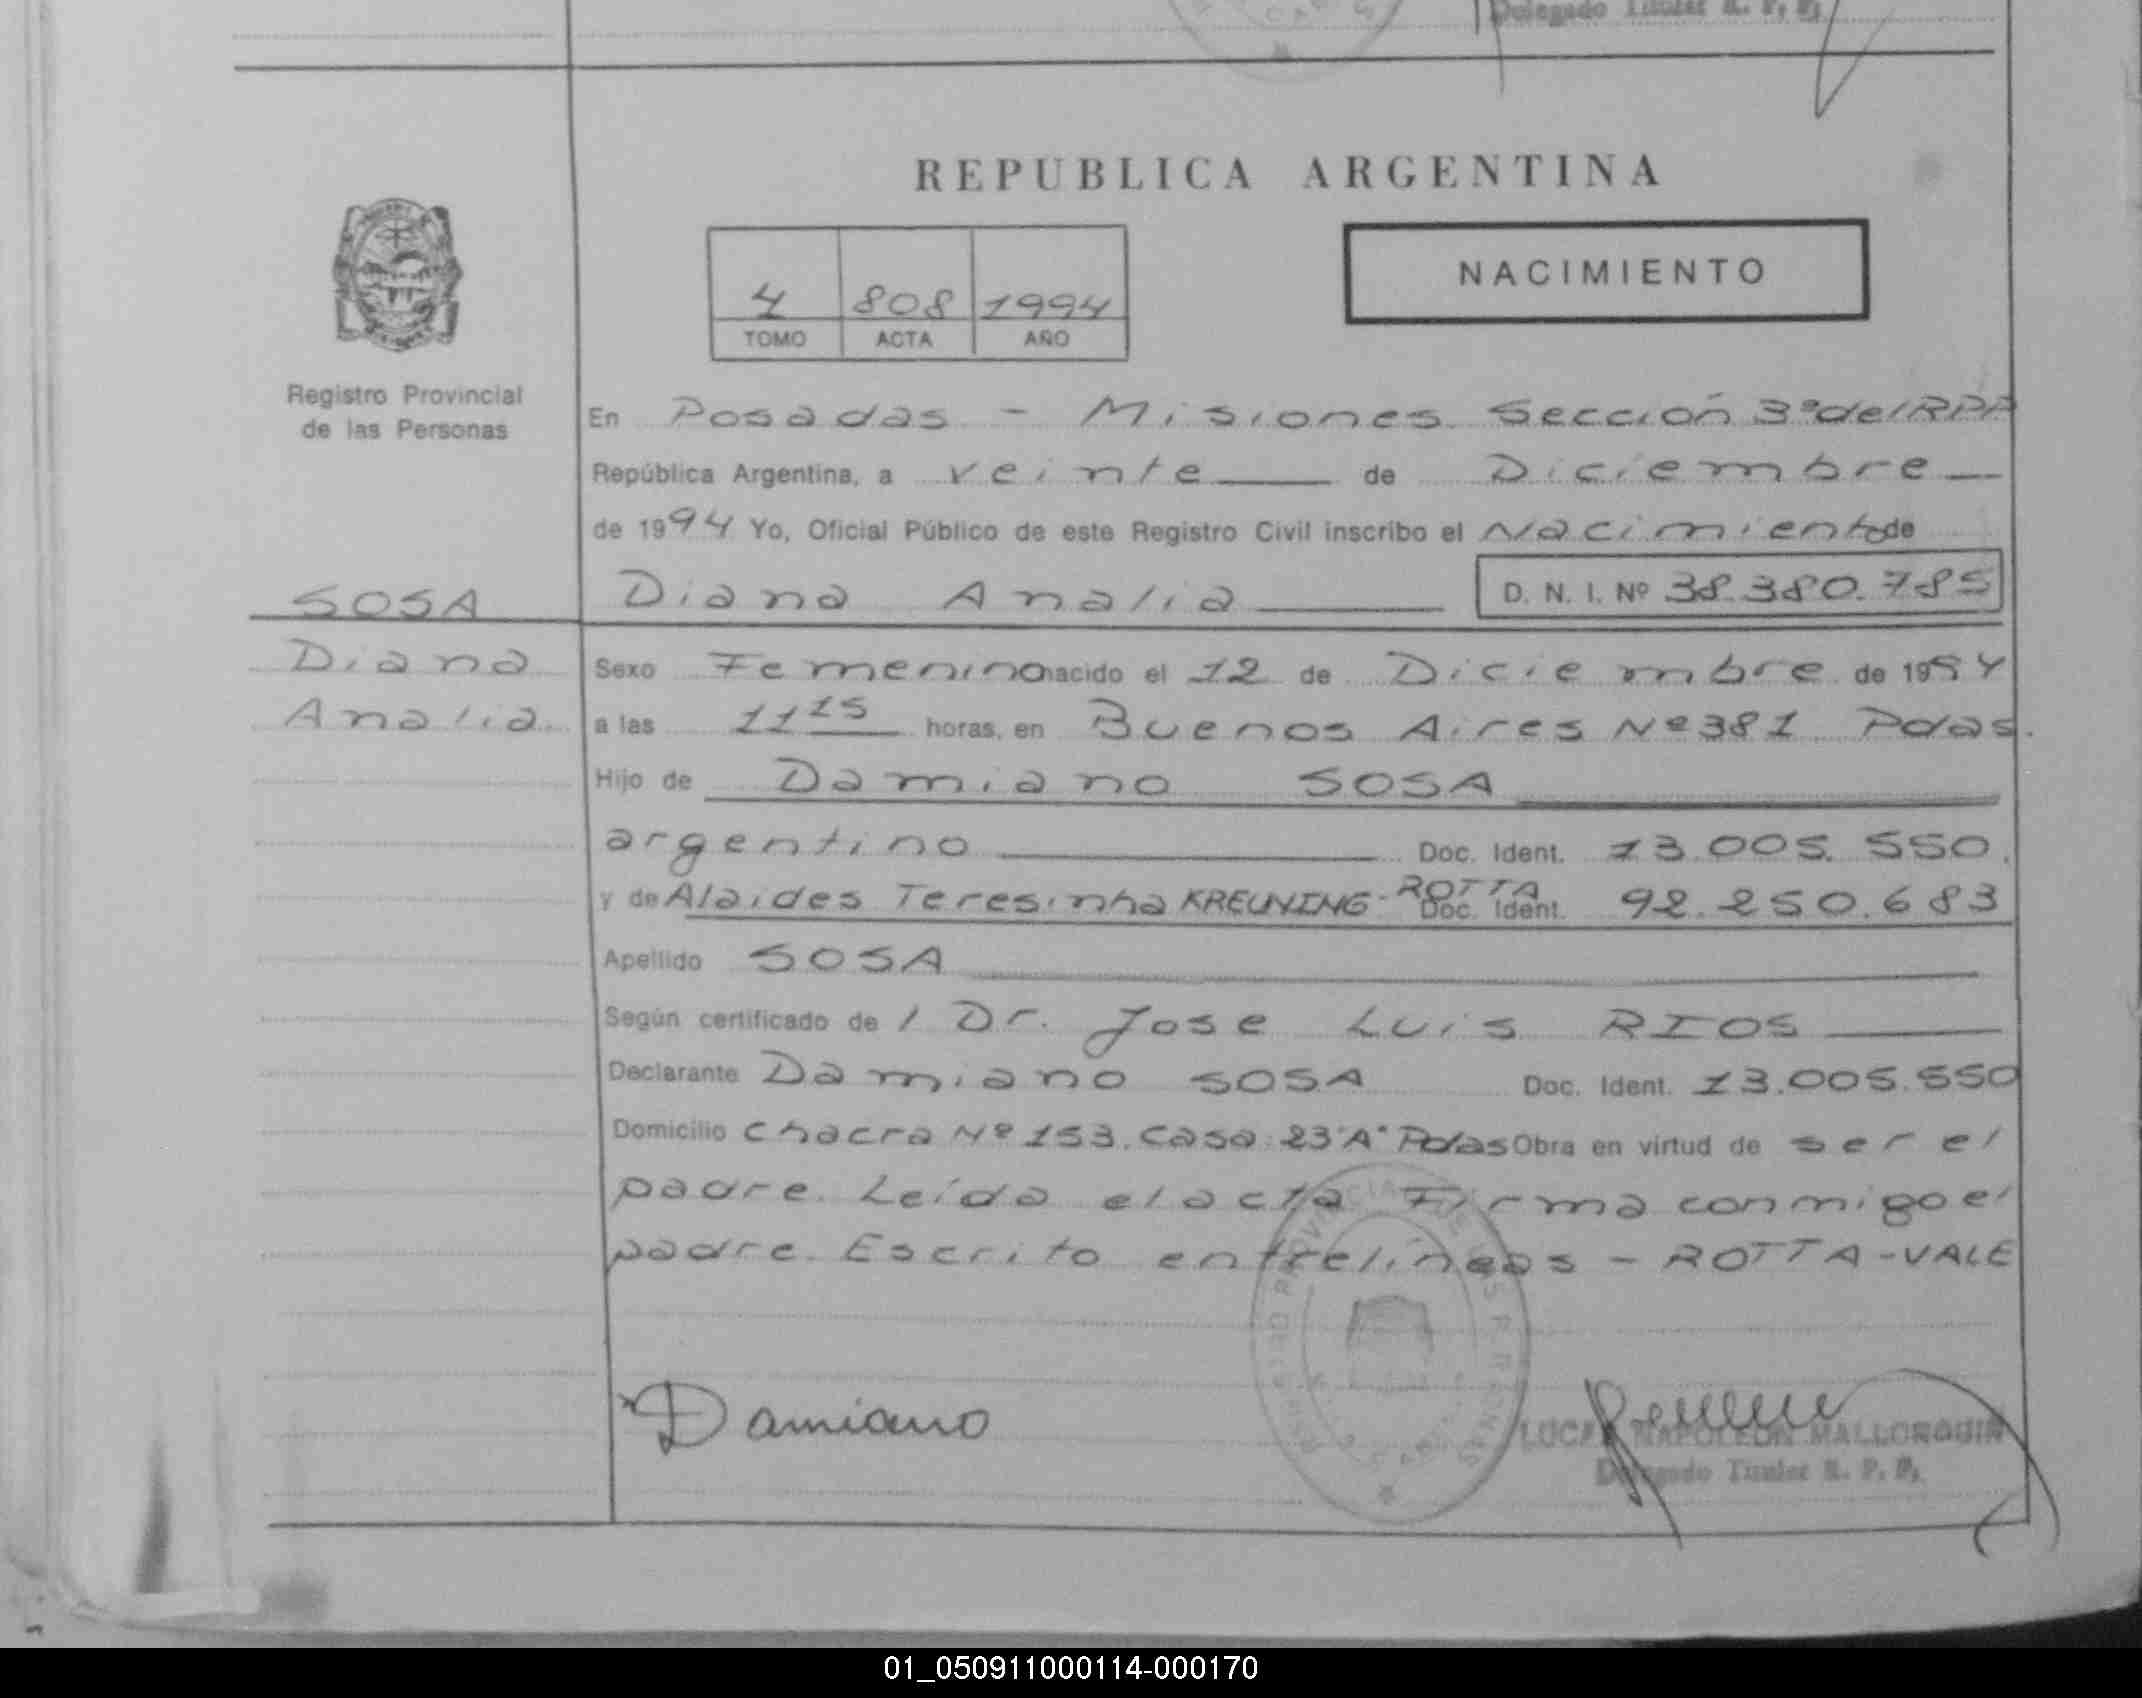 Delegado Titular R. P. P.
REPUBLICA ARGENTINA
NACIMIENTO
4 808 1994
TOMO ACTA AÑO
Registro Provincial
de las Personas
En Posadas - Misiones Sección 3ª del RPP
República Argentina, a veinte de Diciembre
de 1994 Yo, Oficial Público de este Registro Civil inscribo el Nacimiento de
SOSA Diana Analia D. N. I. Nº 38.380.785
Diana Sexo Femenino nacido el 12 de Diciembre de 1994
Analia a las 11 15 horas, en Buenos Aires Nº 381 Pdas.
Hijo de Damiano SOSA
argentino Doc. Ident. 13.005.550.
y de Alaides Teresinha KREUNING-ROTTA Doc. Ident. 92.250.683
Apellido SOSA
Según certificado de l Dr. Jose Luis RIOS
Declarante Damiano SOSA Doc. Ident. 13.005.550
Domicilio chacra Nº 153. Casa 23"A" Pdas Obra en virtud de ser el
padre. Leída el acta Firma conmigo el
padre. Escrito entrelíneas - ROTTA - VALE
Damiano
LUCAS NAPOLEON MALLORQUIN
Delegado Titular R. P. P.
01_050911000114-000170